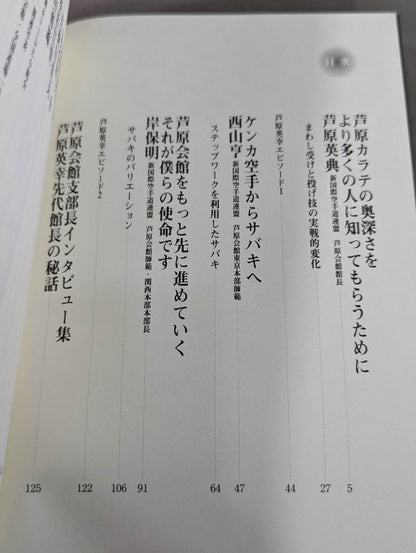 目次
芦原カラテの奥深さを
より多くの人に知ってもらうために
芦原英典 新国際空手道連盟 芦原会館館長
5
まわし受けと投げ技の実戦的変化
27
芦原英幸エピソード1
44
ケンカ空手からサバキへ
西山亨 新国際空手道連盟 芦原会館東京本部師範
47
ステップワークを利用したサバキ
64
芦原会館をもっと先に進めていく
それが僕らの使命です
岸保明 新国際空手道連盟 芦原会館師範・関西本部本部長
91
サバキのバリエーション
106
芦原英幸エピソード2
122
芦原会館支部長インタビュー集
芦原英幸先代館長の秘話
125